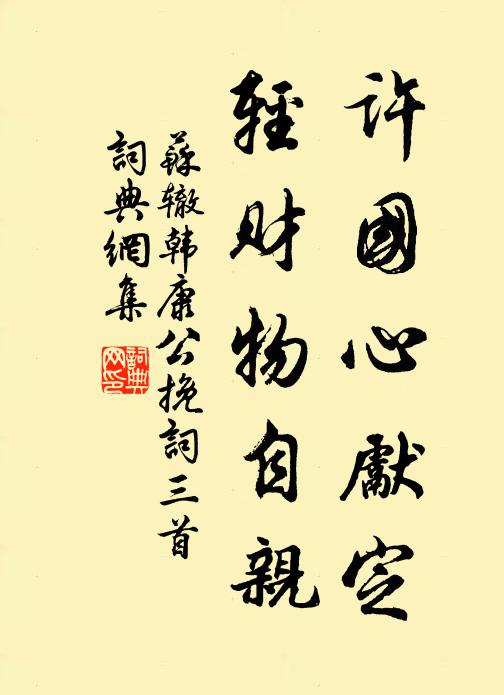 許國心獻定
輕財物自親
蘇轍韓康公挽詞三首
詞典網集
詞典
网印